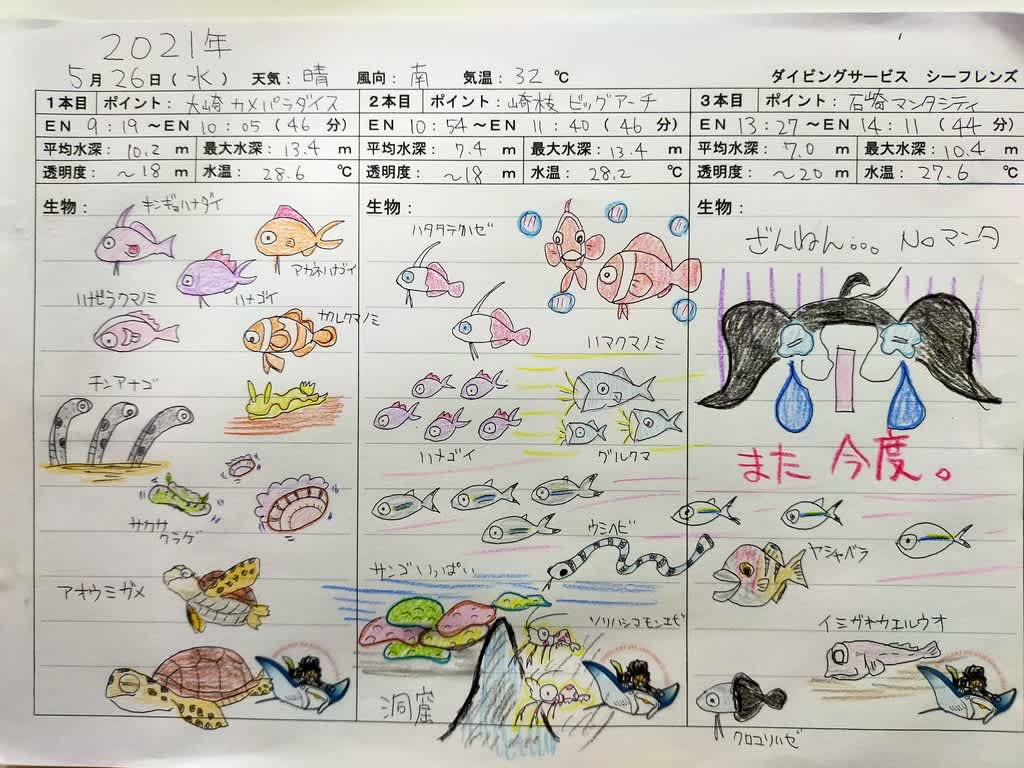 2021年
5月26日(水) 天気：晴 風向：南 気温：32℃ ダイビングサービス シーフレンズ
1本目 ポイント：大崎 カメパラダイス
EN 9：19～EN 10：05(46分)
平均水深：10.2m 最大水深：13.4m
透明度：～18m 水温：28.6℃
生物：
キンギョハナダイ
アカネハナゴイ
ハナゴイ
ハナビラクマノミ
カクレクマノミ
チンアナゴ
サカサ
クラゲ
アオウミガメ
2本目 ポイント：崎枝 ビッグアーチ
EN 10：54～EN 11：40(46分)
平均水深：7.4m 最大水深：13.4m
透明度：～18m 水温：28.2℃
生物：
ハタタテハゼ
ハマクマノミ
ハナゴイ
グルクマ
ウミヘビ
サンゴいっぱい
ソリハシコモンエビ
洞窟
3本目 ポイント：石崎 マンタシティ
EN 13：27～EN 14：11(44分)
平均水深：7.0m 最大水深：10.4m
透明度：～20m 水温：27.6℃
生物：
ざんねん。。。 Noマンタ
また 今度。
ヤシャベラ
イシガキカエルウオ
クロユリハゼ